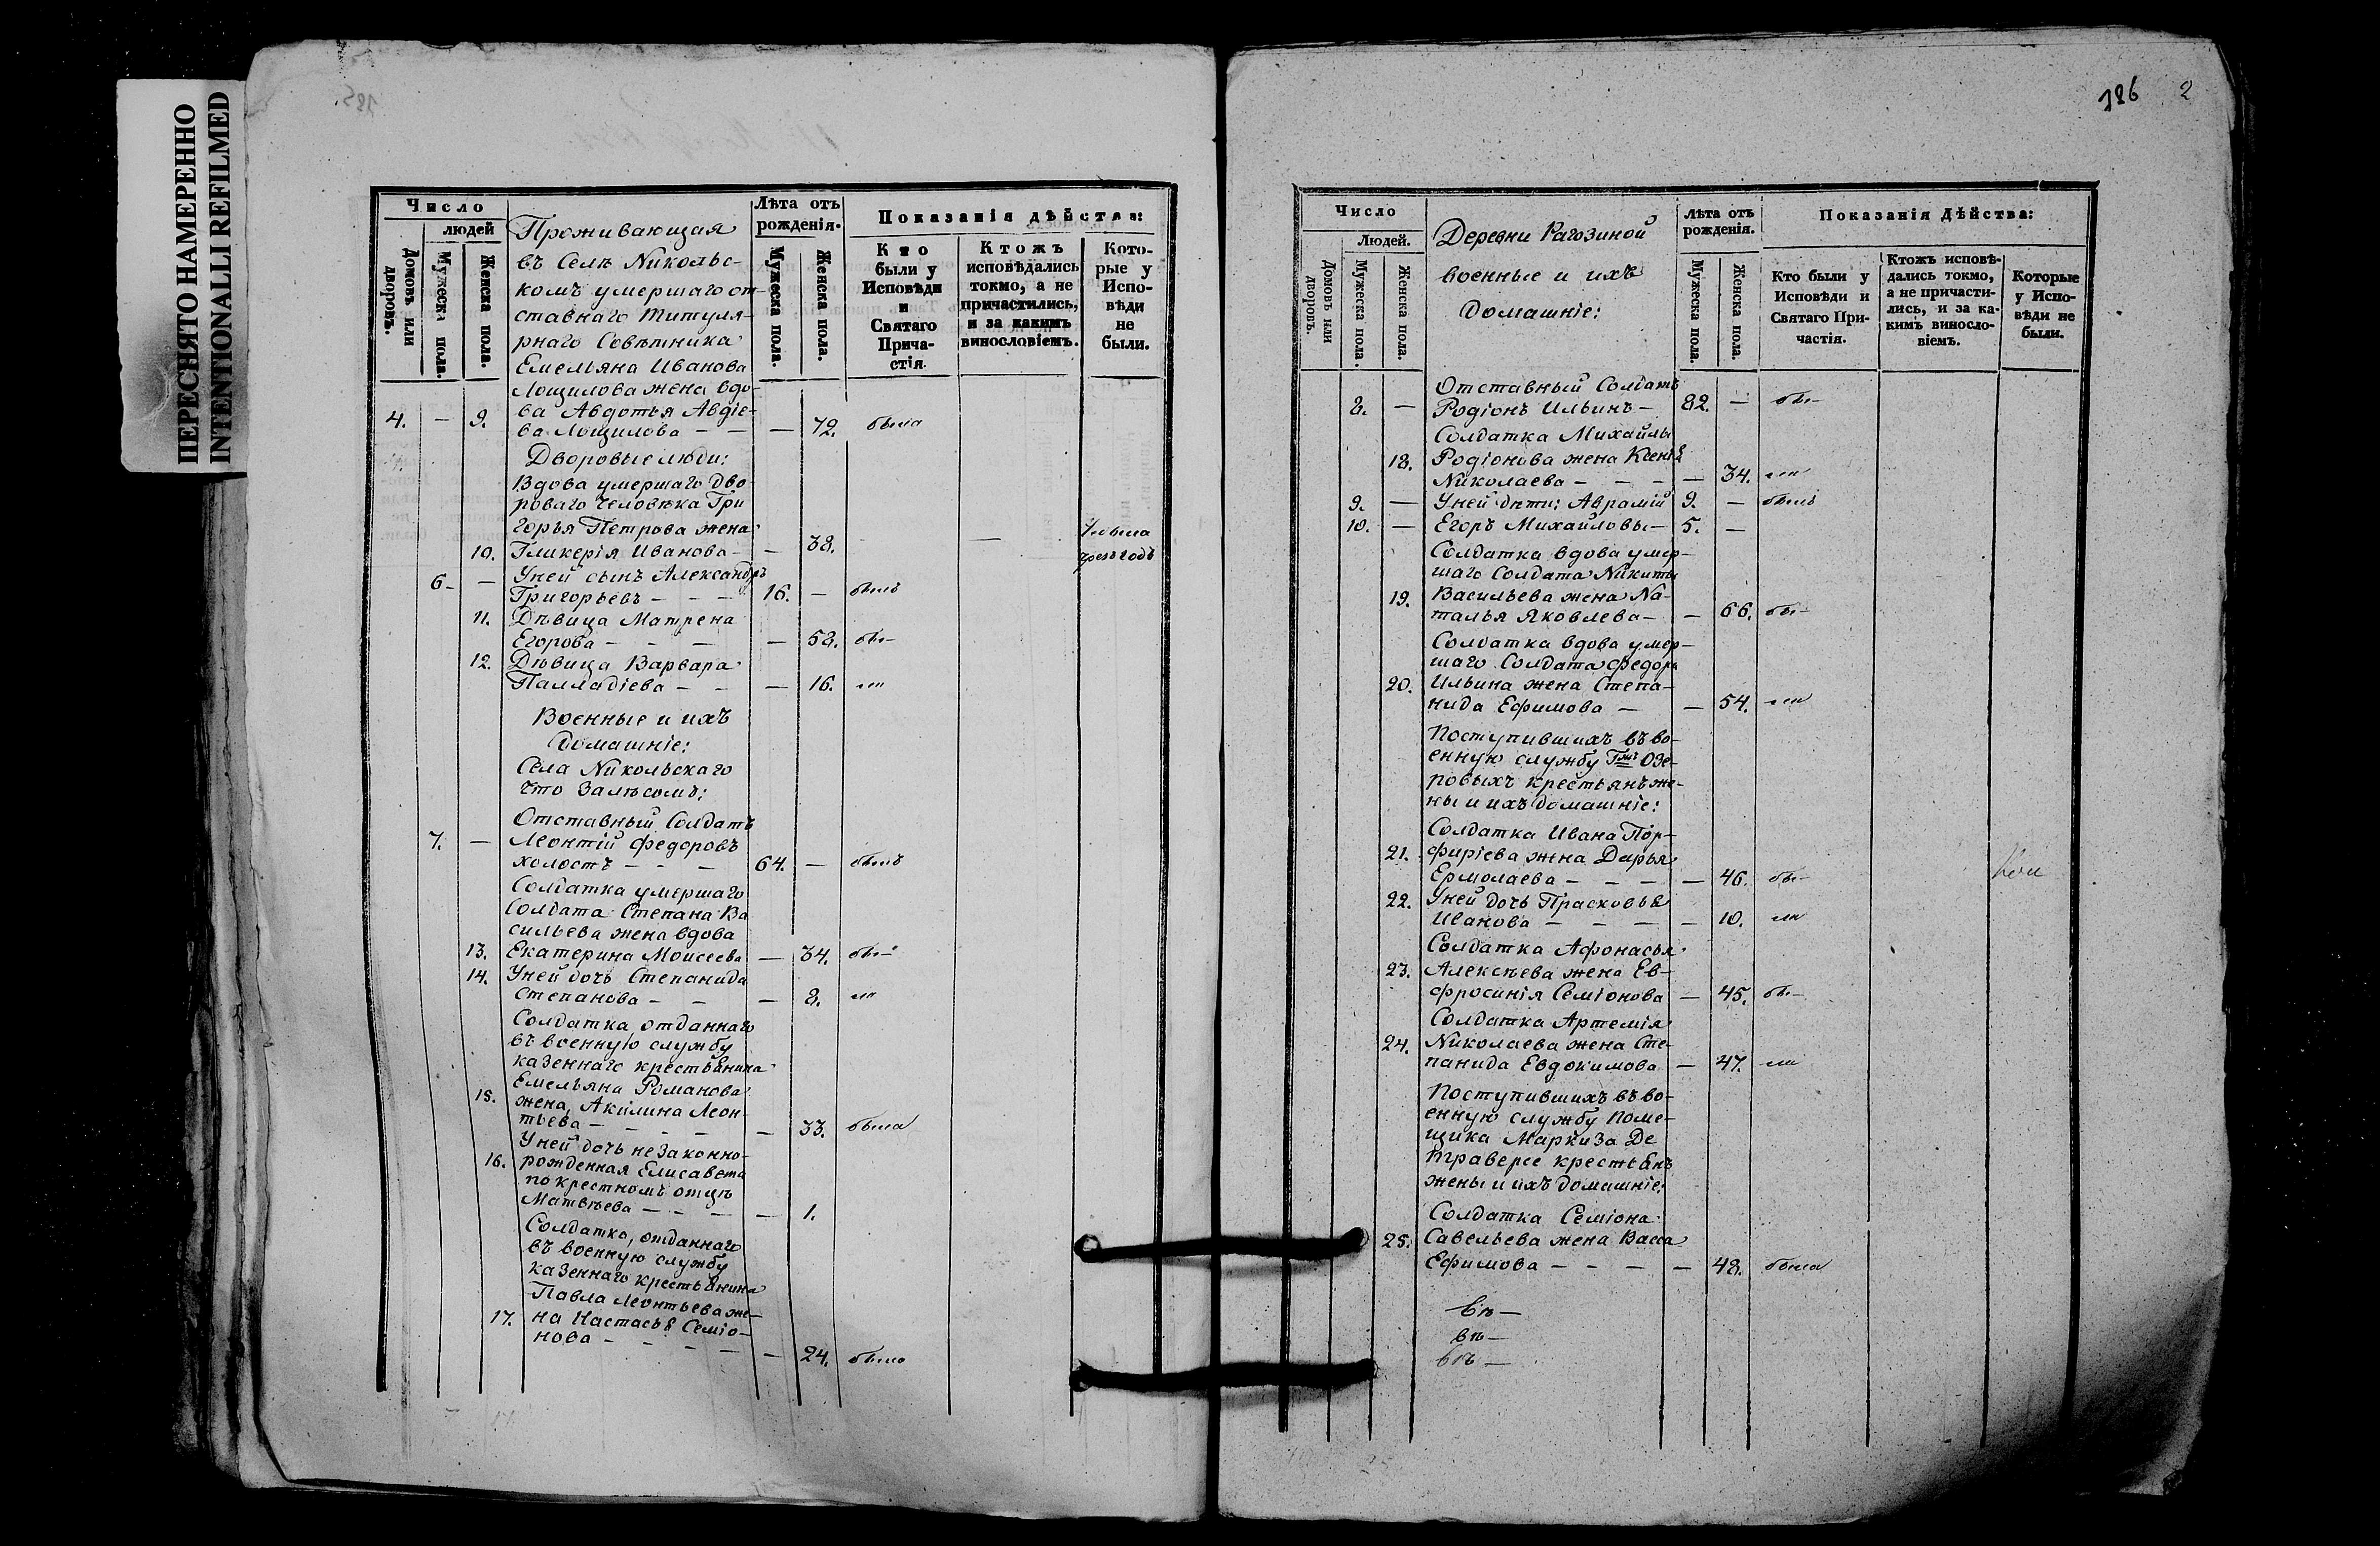 ПЕРЕСНЯТО НАМЕРЕННО
INTENTIONALLI REFILMED
Число
людей
Домовъ или дворовъ.
Мужеска пола.
Женска пола.
Проживающая
въ Селѣ Николь-
комъ умершаго от-
ставнаго Титуля-
рнаго Совѣтника
Емельяна Иванова
Лощилова жена вдо-
4. — 9. ва Авдотья Авдіе-
ва Лощилова — — — 72. была
Лѣта отъ рожденія.
Мужеска пола.
Женска пола.
Показанія дѣйства:
Кто были у Исповѣди и Святаго Прича-стія.
Ктожъ исповѣдались токмо, а не причастились, и за какимъ винословіемъ.
Кото-рые у Испо-вѣди не были.
Дворовые люди:
Вдова умершаго дво-
роваго человѣка Гри
горья Петрова жена
10. Гликерія Иванова — — 38. —
6 — У ней сынъ Александръ
Григорьевъ — — — 16. — былъ
11. Дѣвица Матрена
Егорова — — — — 58. бы—
12. Дѣвица Варвара
Палладіева — — — 16. ла
Военные и ихъ
домашніе:
Села Никольскаго
что Залѣсомъ:
Отставный Солдатъ
7. — Леонтій Федоровъ
холостъ — — — 64. — былъ
Солдатка умершаго
Солдата Степана Ва
сильева жена вдова
13. Екатерина Моисеева — 34. бы—
14. У ней дочь Степанида
Степанова — — — 8. ла
Солдатка, отданнаго
въ военную службу
казеннаго крестьянина
Емельяна Романова
15. жена, Акилина Леон-
тьева — — — — — 33. была
У ней дочь незаконно-
16. рожденная Елисавета
по крестномъ отцѣ
Матвѣева — — — — 1.
Солдатка, отданнаго
въ военную службу
казеннаго крестьянина
Павла Леонтьева же-
17. на Настасья Семіо-
нова — — — — — 24. была
186 2
Число
Людей.
Домовъ или дворовъ.
Мужеска пола.
Женска пола.
Деревни Рагозиной
военные и ихъ
домашніе:
Лѣта отъ рожденія.
Мужеска пола.
Женска пола.
Показанія Дѣйства:
Кто были у Исповѣди и Святаго При-частія.
Ктожъ исповѣ-дались токмо, а не причасти-лись, и за ка-кимъ винословіемъ.
Которые у Испо-вѣди не были.
Отставный Солдатъ
8. — Родіонъ Ильинъ — 82. — бы—
Солдатка Михайлы
18. Родіонова жена Ксенія
Николаева — — — — 34. ла
9. — У ней дѣти: Аврамій 9. — былъ
10. — Егоръ Михайловы — 5. —
Солдатка вдова умер-
шаго Солдата Никиты
19. Васильева жена На-
талья Яковлева — — 66. бы—
Солдатка вдова умер-
шаго Солдата Федора
20. Ильина жена Степа-
нида Ефимова — — 54. ла
Поступившихъ въ во-
енную службу Гжъ Озе-
ровыхъ крестьянъ же-
ны и ихъ домашніе:
Солдатка Ивана Пор-
21. фиріева жена Дарья
Ермолаева — — — — 46. бы—
22. У ней дочь Прасковья
Иванова — — — — 10. ла
Солдатка Афонасья
23. Алексѣева жена Ев-
фросинія Семіонова — 45. бы—
Солдатка Артемія
24. Николаева жена Сте-
панида Евдокимова — 47. ла
Поступившихъ въ во-
енную службу поме-
щика Маркиза Де
Траверсе крестьянъ
жены и ихъ домашніе:
Солдатка Семіона
25. Савельева жена Васса
Ефимова — — — — 48. была